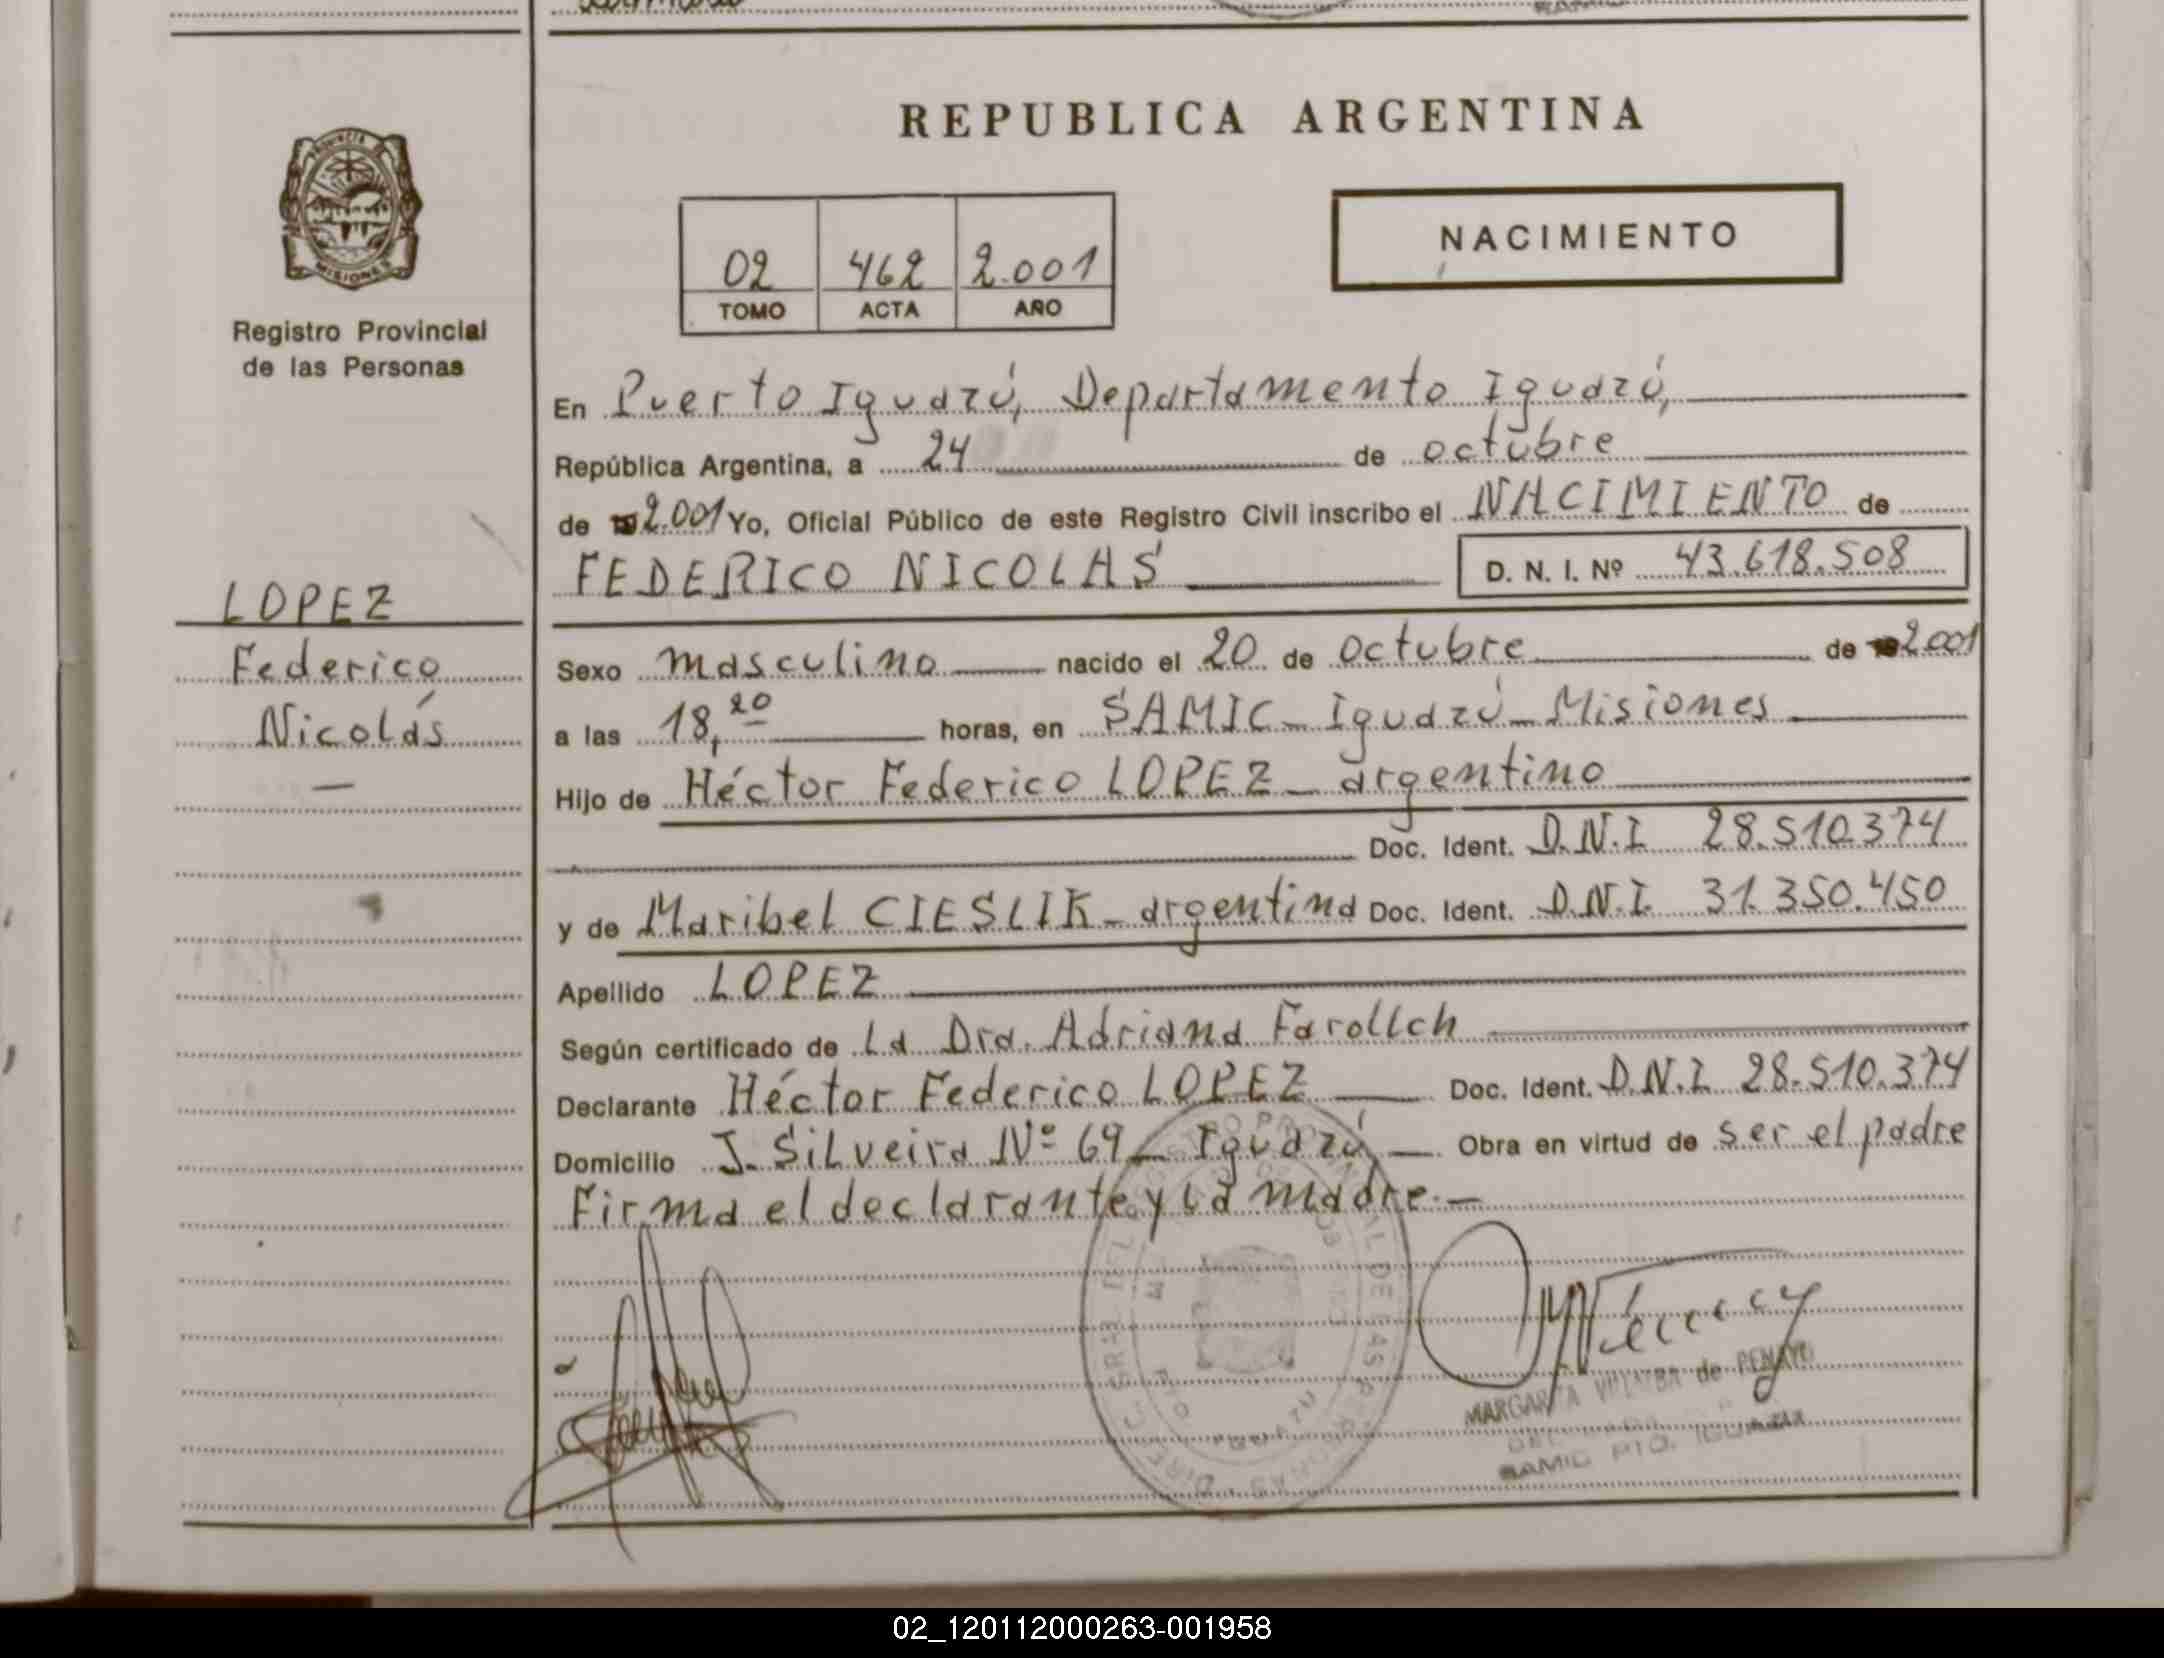 REPUBLICA ARGENTINA
PROVINCIA DE
MISIONES
Registro Provincial
de las Personas
NACIMIENTO
02 462 2.001
TOMO ACTA AÑO
En Puerto Iguazú, Departamento Iguazú,
República Argentina, a 24 de octubre
de 2.001 Yo, Oficial Público de este Registro Civil inscribo el NACIMIENTO de
FEDERICO NICOLAS D. N. I. Nº 43.618.508
LOPEZ
Federico
Nicolás
Sexo masculino nacido el 20 de octubre de 2001
a las 18,20 horas, en SAMIC - Iguazú - Misiones
Hijo de Héctor Federico LOPEZ - argentino
Doc. Ident. D.N.I. 28.510.374
y de Maribel CIESLIK - argentina Doc. Ident. D.N.I. 31.350.450
Apellido LOPEZ
Según certificado de La Dra. Adriana
Declarante Héctor Federico LOPEZ Doc. Ident. D.N.I. 28.510.374
Domicilio J. Silveira Nº 69 - Iguazú - Obra en virtud de ser el padre
Firma el declarante y la madre.-
MARGARITA VILLALBA de PENAYO
SAMIC PTO. IGUAZU
02_120112000263-001958